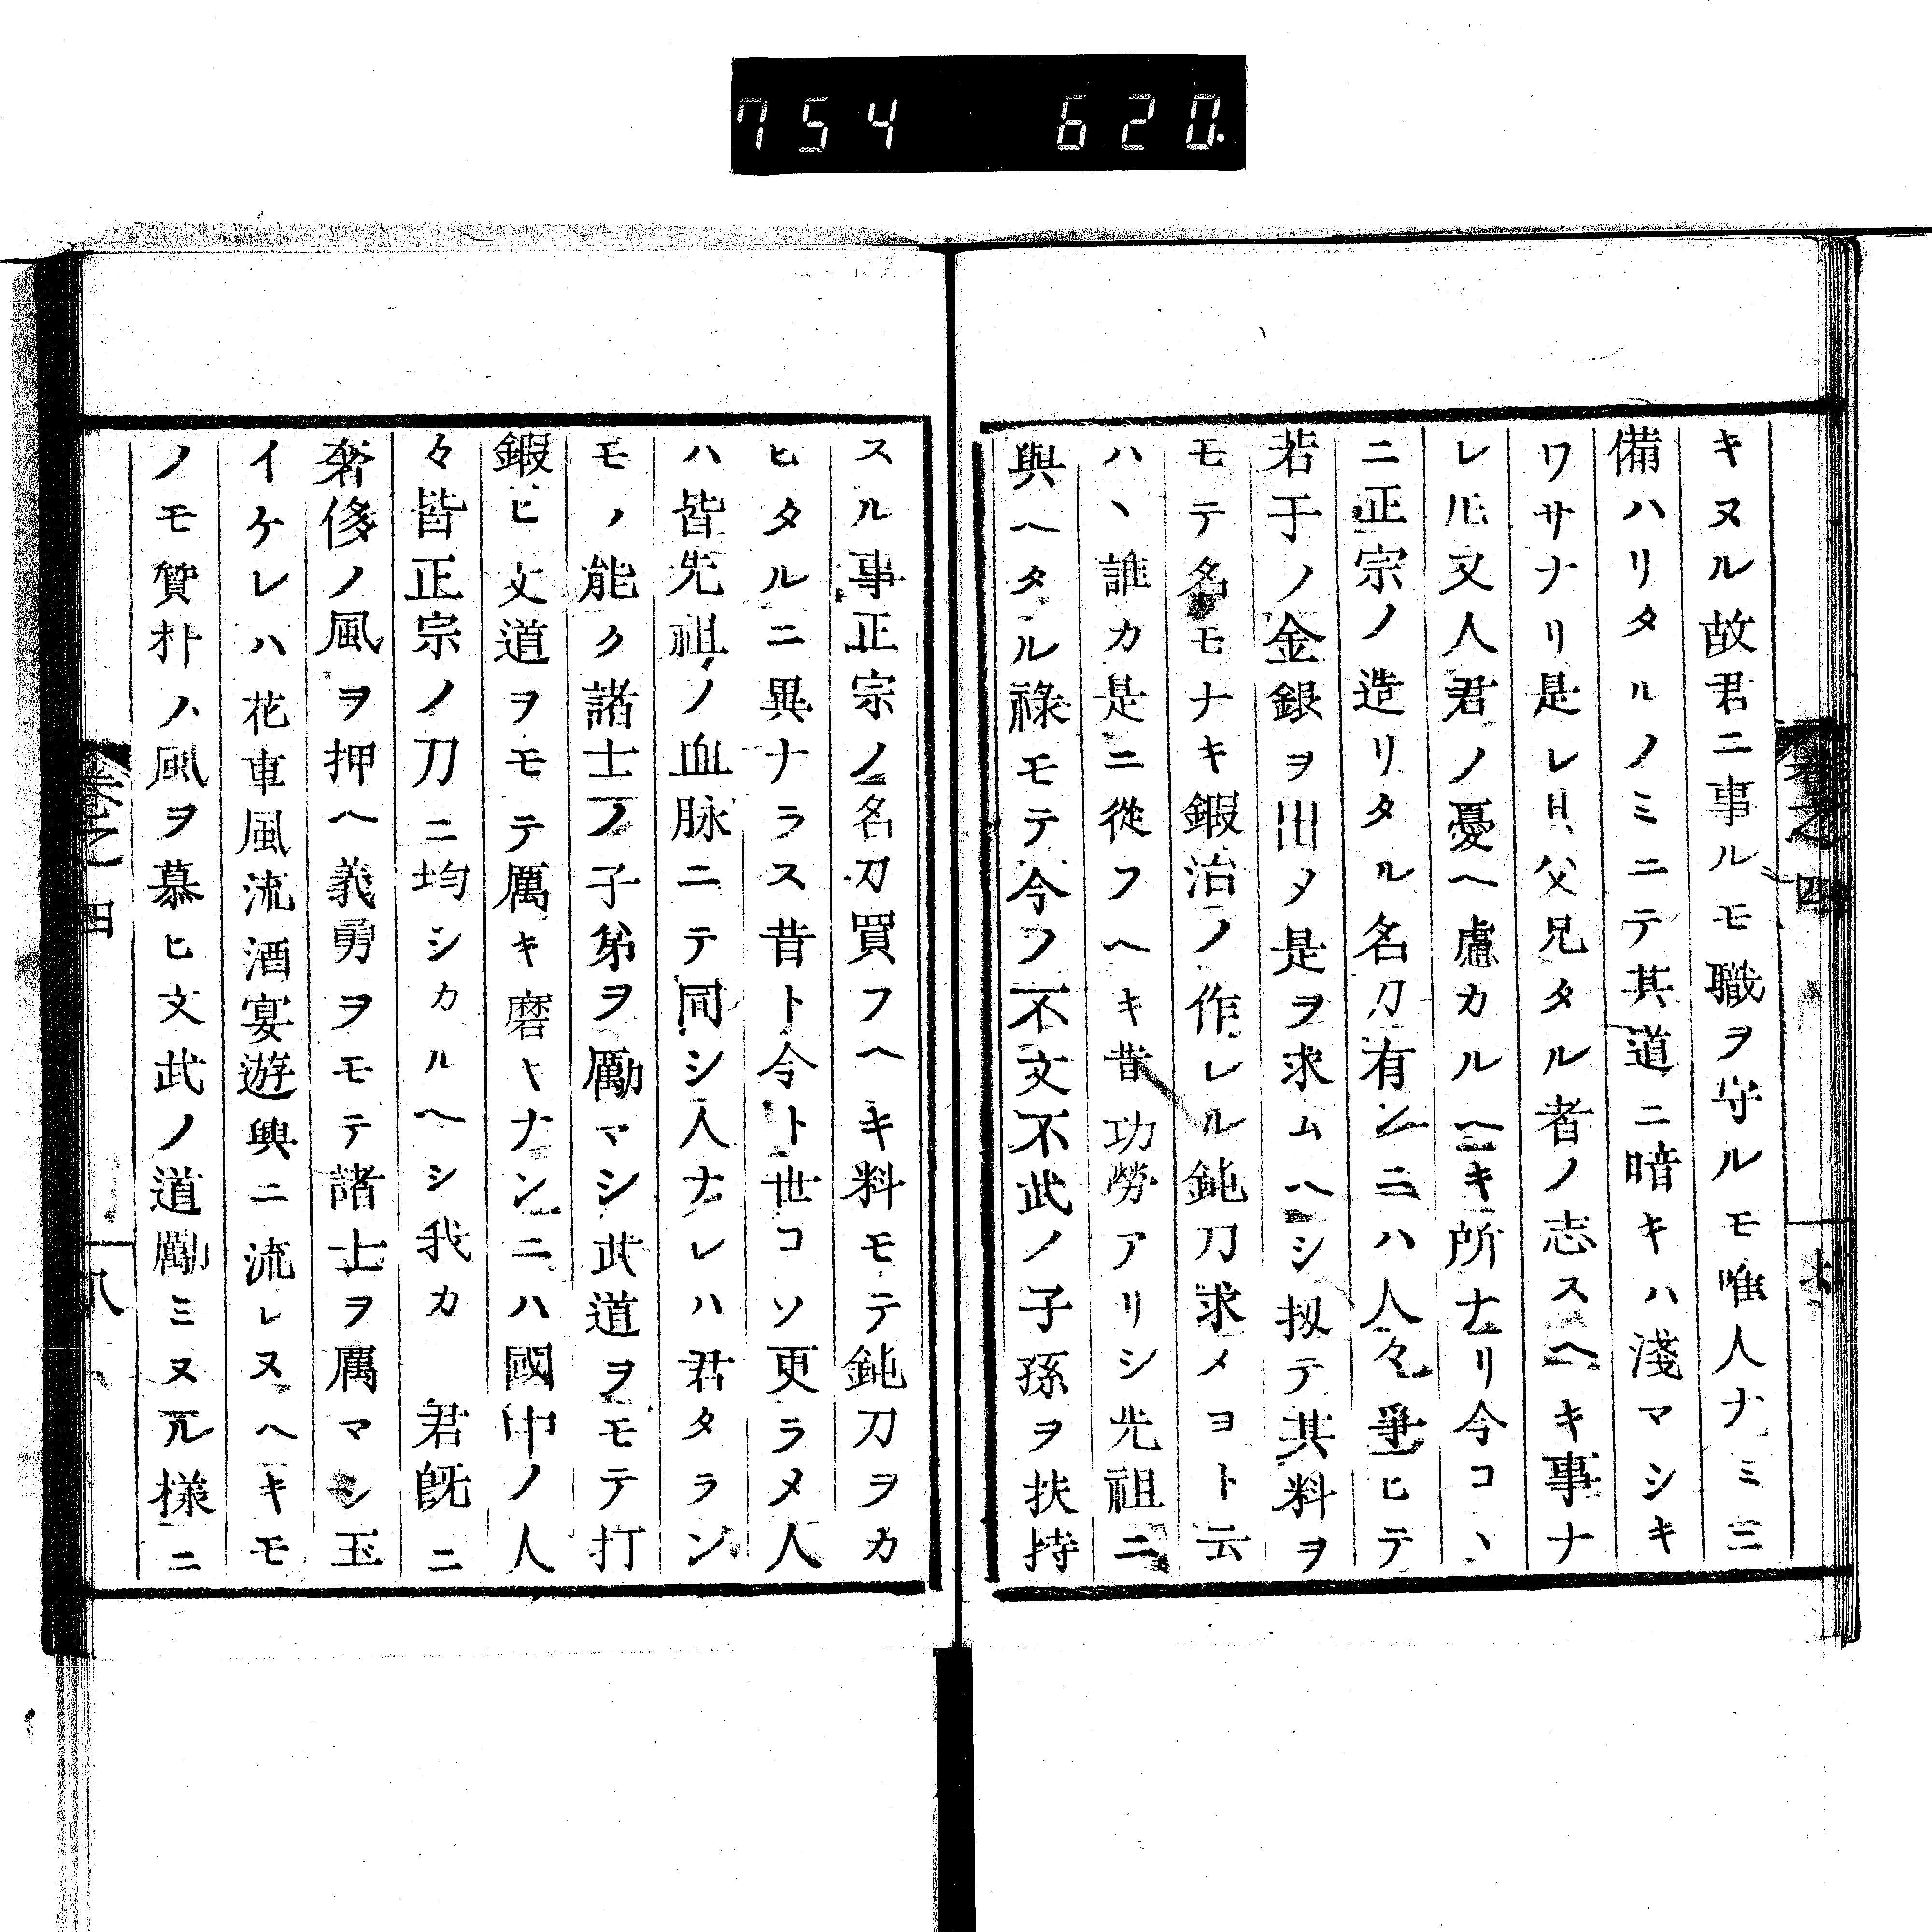 754 620.
キヌル故君ニ事ルモ職ヲ守ルモ唯人ナミニ
備ハリタルノミニテ其道ニ暗キハ淺マシキ
ワサナリ是レ且父兄タル者ノ志スヘキ事ナ
レ𪜈又人君ノ憂ヘ慮カルヘキ所ナリ今コヽ
ニ正宗ノ造リタル名刀有ンニハ人々爭ヒテ
若干ノ金銀ヲ出タ是ヲ求ムヘシ扨テ其料ヲ
モテ名モナキ鍜治ノ作レル鈍刀求メヨト云
ハヽ誰カ是ニ從フヘキ昔功勞アリシ先祖ニ
與ヘタル祿モテ今ノ不文不武ノ子孫ヲ扶持
スル事正宗ノ名刀買フヘキ料モテ鈍刀ヲカ
ヒタルニ異ナラス昔ト今ト世コソ更ラメ人
ハ皆先祖ノ血脉ニテ同シ人ナレハ君タラン
モノ能ク諸士ノ子弟ヲ勵マシ武道ヲモテ打
鍜ヒ文道ヲモテ厲キ磨キナンニハ國中ノ人
々皆正宗ノ刀ニ均シカルヘシ我カ 君既ニ
奢侈ノ風ヲ押ヘ義勇ヲモテ諸士ヲ厲マシ玉
イケレハ花車風流酒宴遊興ニ流レヌヘキモ
ノモ質朴ノ風ヲ慕ヒ文武ノ道勵ミヌル樣ニ
卷之四
八